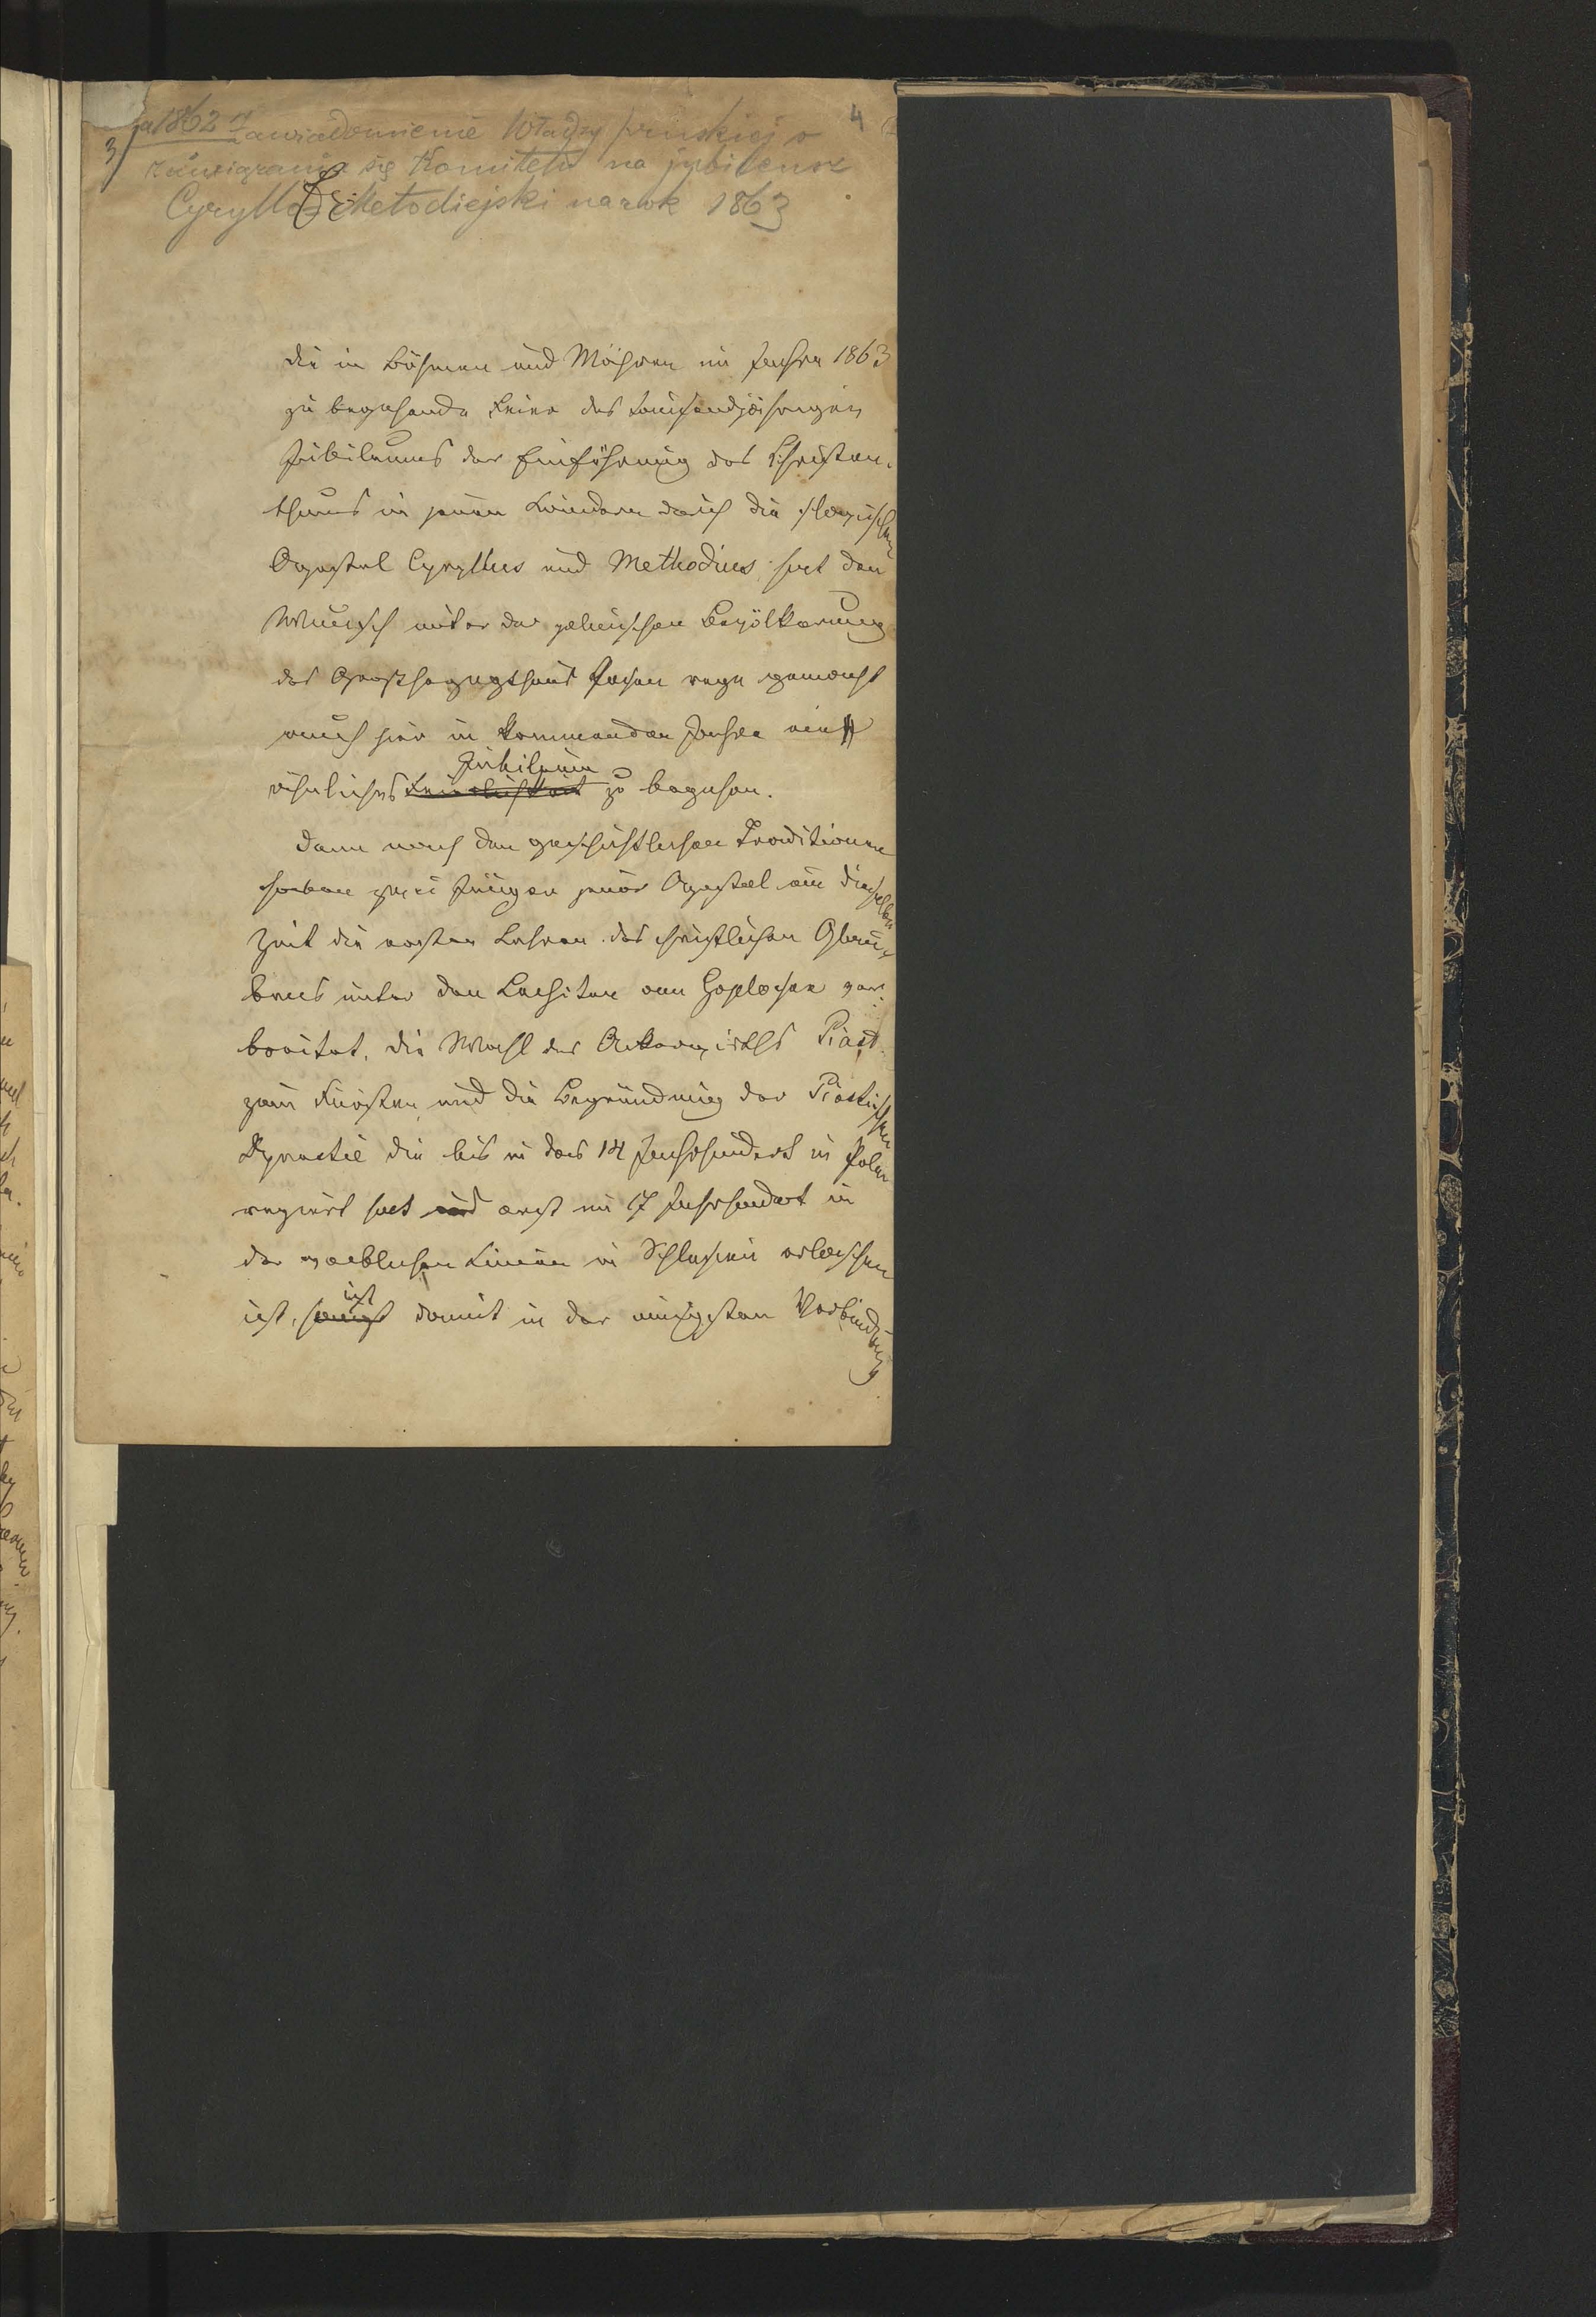 a 1862 r Zawiadomienie Władzy pruskiej o 4
3/ zawiązaniu się Komitetu na jubileusz
Cyryllo-Metodiejski na rok 1863
Die in Böhmen und Mähren im Jahre 1863
zu begehende Feier des tausendjährigen
Jubiläums der Einführung des Christen-
thums in jenen Ländern durch die slavischen
Apostel Cyryllus und Methodius hat den
Wunsch unter der polnischen Bevölkerung
des Großherzogthums Posen rege gemacht
auch hier im kommenden Jahre ein
Jubiläum
ähnliches Feierlichkeit zu begehen.
Denn nach den geschichtlichen Traditionen
haben zwei Jünger jener Apostel um dieselbe
Zeit die ersten Lehren des christlichen Glau-
bens unter den Lechiten am Goplosee ver-
breitet. Die Wahl des Ackerwirths Piast
zum Fürsten und die Begründung der Piastischen
Dynastie die bis in das 14 Jahrhundert in Polen
regiert hat und erst im 17 Jahrhundert in
der weiblichen Linien in Schlesien erloschen
ist
ist, hängt damit in der innigsten Verbindung